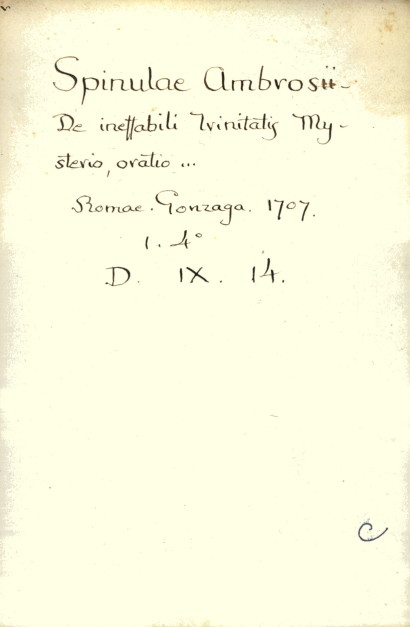 Spinulae Ambrosii-
De ineffabili Trinitatis My-
sterio, oratio ...
Romae. Gonzaga. 1707.
1. 4°
D. IX. 14.
C